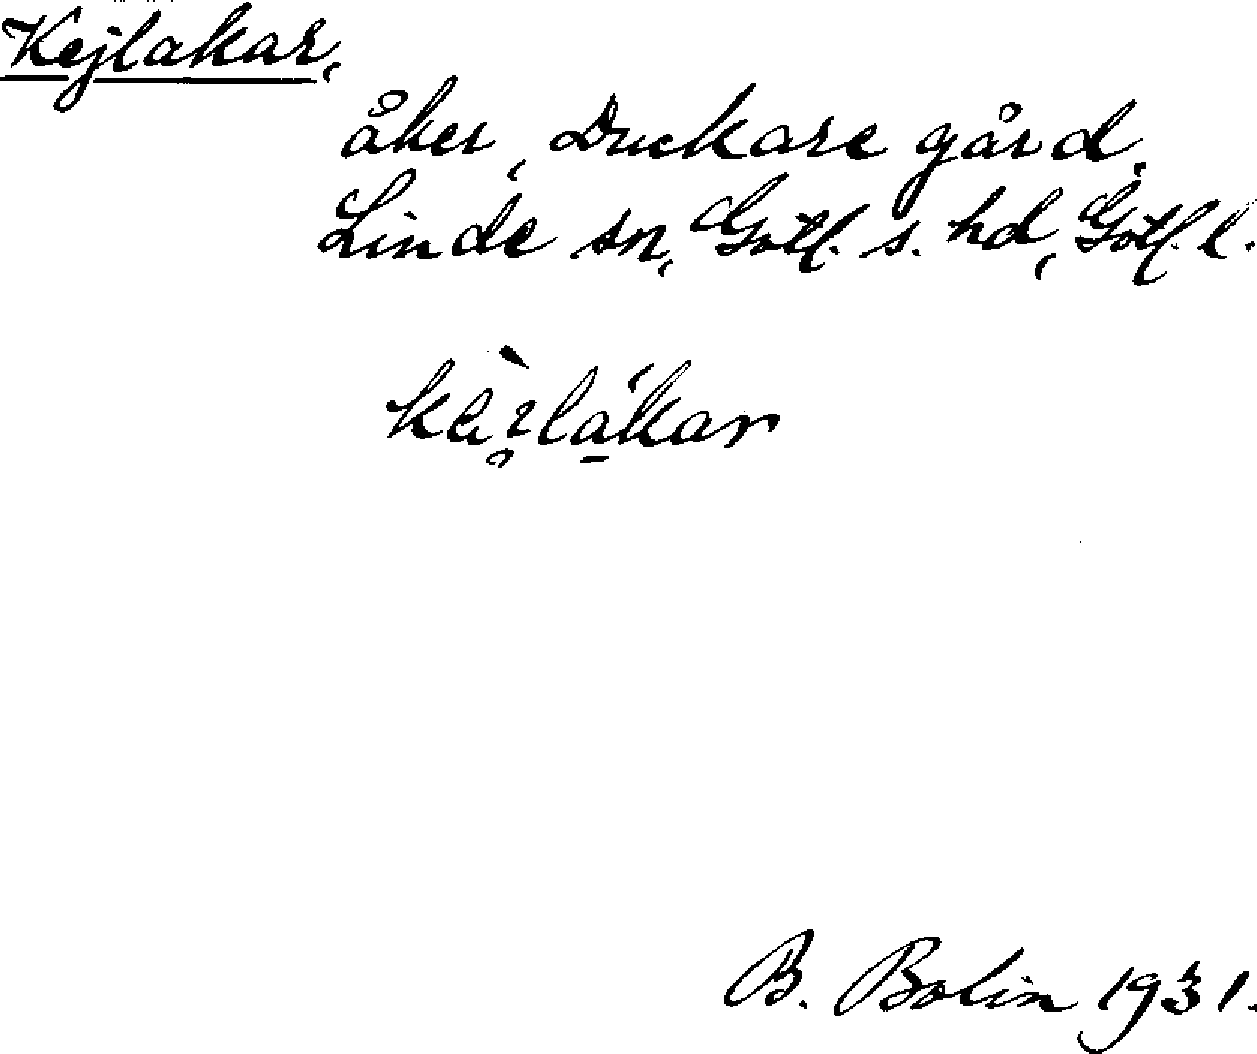 Kejlakar,
åker, Duckare gård,
Linde sn, Gotl. s. hd, Gotl. l.
B. Bolin 1931.